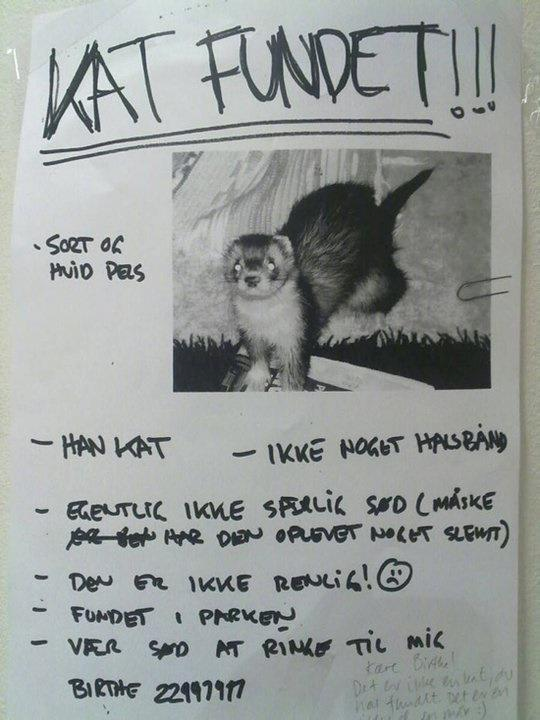 KAT FUNDET!!!
• SORT OG
HVID PELS
– HAN KAT – IKKE NOGET HALSBÅND
– EGENTLIG IKKE SÆRLIG SØD (MÅSKE
HAR DEN OPLEVET NOGET SLEMT)
– DEN ER IKKE RENLIG! ☹
– FUNDET I PARKEN
– VÆR SØD AT RINGE TIL MIG
BIRTHE 22997977
Kære Birthe!
Det er ikke en kat, du
har fundet. Det er en
:)